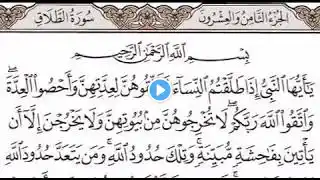 الجُزْءُ الثَّامِنُ وَالعِشْرُونَ
سُورَةُ الطَّلَاقِ
بِسْمِ ٱللَّهِ ٱلرَّحْمَٰنِ ٱلرَّحِيمِ
يَٰٓأَيُّهَا ٱلنَّبِىُّ إِذَا طَلَّقْتُمُ ٱلنِّسَآءَ لِعِدَّتِهِنَّ وَأَحْصُوا۟ ٱلْعِدَّةَ ۖ
وَٱتَّقُوا۟ ٱللَّهَ رَبَّكُمْ ۖ لَا تُخْرِجُوهُنَّ مِنۢ بُيُوتِهِنَّ وَلَا يَخْرُجْنَ إِلَّآ أَن
يَأْتِينَ بِفَٰحِشَةٍ مُّبَيِّنَةٍ ۚ وَتِلْكَ حُدُودُ ٱللَّهِ ۚ وَمَن يَتَعَدَّ حُدُودَ ٱللَّهِ